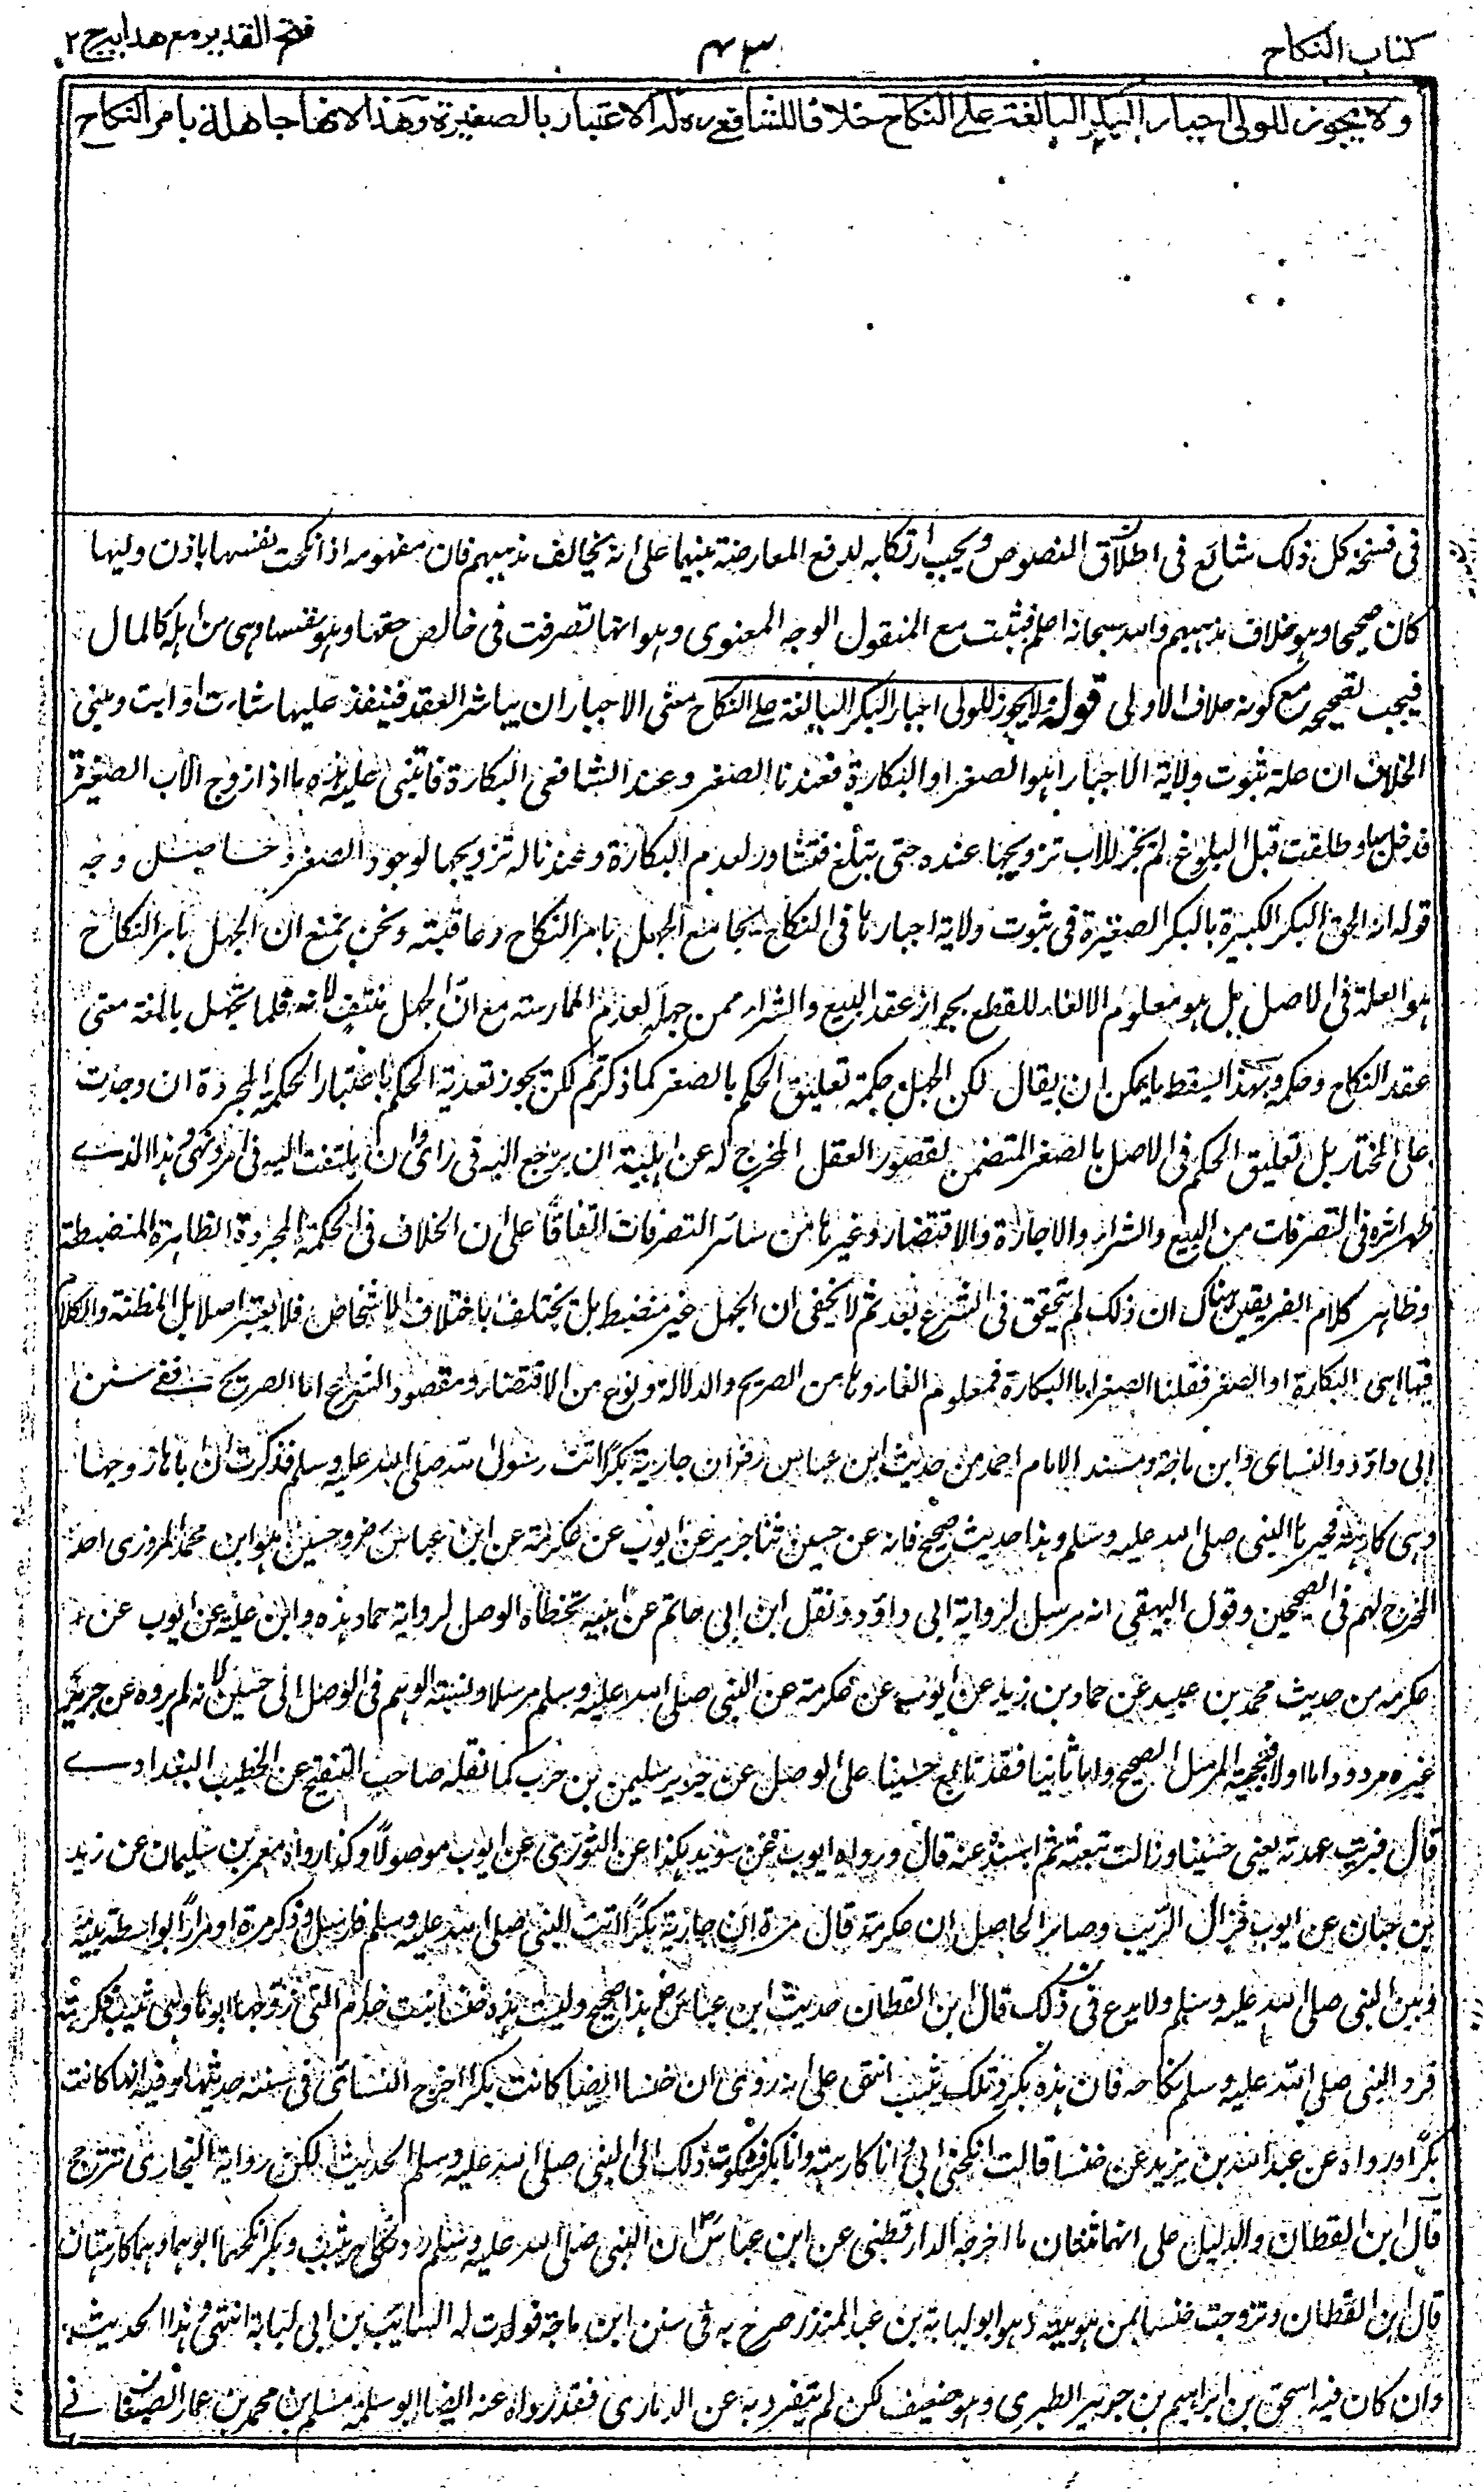 كتاب النكاح
٤٣
فتح القدير مع هدايه ج ٢
ولا يجوز للولى اجبار البكر البالغة على النكاح خلافا للشافعى ره له الاعتبار بالصغيرة وهذا لانها جاهلة بامر النكاح
فى فسخه كل ذلك شائع فى اطلاق النصوص ويجب ارتكابه لدفع المعارضة بينهما على انه يخالف مذهبهم فان مفهومه اذا نكحت نفسها باذن وليها
كان صحيحا وهو خلاف مذهبهم والله سبحانه اعلم فثبت مع المنقول الوجه المعنوى وهو انها تصرفت فى خالص حقها وهو نفسها وهى من اهله كالمال
فيجب تصحيحه مع كونه خلاف الاولى قوله ولا يجوز للولى اجبار البكر البالغة على النكاح معنى الاجبار ان يباشر العقد فينفذ عليها شاءت او ابت ومبنى
الخلاف ان علة ثبوت ولاية الاجبار اهو الصغر او البكارة فعندنا الصغر وعند الشافعى البكارة فابتنى عليه هذه ما اذا زوج الاب الصغيرة
فدخل بها وطلقت قبل البلوغ لم يجز للاب تزويجها عنده حتى تبلغ فتشاور لعدم البكارة وعندنا له تزويجها لوجود الصغر وحاصل وجه
قوله انه الحق البكر الكبيرة بالبكر الصغيرة فى ثبوت ولاية اجبارها فى النكاح بجامع الجهل بامر النكاح وعاقبته ونحن نمنع ان الجهل بامر النكاح
هو العلة فى الاصل بل هو معلوم الالغاء للقطع بجواز عقد البيع والشراء ممن جهله لعدم الممارسة مع ان الجهل منتف لانه قلما تجهل بالغة معنى
عقد النكاح وحكمه وبهذا يسقط ما يمكن ان يقال لكن الجهل حكمة تعليق الحكم بالصغر كما ذكرتم لكن يجوز تعدية الحكم باعتبار الحكمة المجردة ان وجدت
على المختار بل تعليق الحكم فى الاصل بالصغر المتضمن لقصور العقل المخرج له عن اهلية ان يرجع اليه فى راى وان يلتفت اليه فى امر ونهى وهذا الذى
ظهر اثره فى التصرفات من البيع والشراء والاجارة والاقتضاء وغيرها من سائر التصرفات اتفاقا على ان الخلاف فى الحكمة المجردة الظاهرة المنضبطة
وظاهر كلام الفريقين هناك ان ذلك لم يتحقق فى الشرع بعد ثم لا يخفى ان الجهل غير منضبط بل يختلف باختلاف الاشخاص فلا يعتبر اصلا بل المظنة والكلام
فيها اهى البكارة او الصغر فقلنا الصغر اما البكارة فمعلوم الغاؤها من الصريح والدلالة ونوع من الاقتضاء ومقصود الشرع اما الصريح ففى سنن
ابى داؤد والنسائى وابن ماجة ومسند الامام احمد من حديث ابن عباس رض ان جارية بكرا اتت رسول الله صلى الله عليه وسلم فذكرت ان اباها زوجها
وهى كارهة فخيرها النبى صلى الله عليه وسلم وهذا حديث صحيح فانه عن حسين ثنا جرير عن ايوب عن عكرمة عن ابن عباس رض وحسين هو ابن محمد المروزى احد
المخرج لهم فى الصحيحين وقول البيهقى انه مرسل لرواية ابى داؤد ونقل ابن ابى حاتم عن ابيه تخطأه الوصل لرواية حماد هذه وابن علية عن ايوب عن
عكرمه من حديث محمد بن عبيد عن حماد بن زيد عن ايوب عن عكرمة عن النبى صلى الله عليه وسلم مرسلا ونسبته الوهم فى الوصل الى حسين لانه لم يروه عن جرير
غيره مردود اما اولا فبحجية المرسل الصحيح واما ثانيا فقد تابع حسينا على الوصل عن جرير سليمن بن حرب كما نقله صاحب التنقيح عن الخطيب البغدادى
قال فبريت عهدته يعنى حسينا وزالت تبعته ثم اسنده عنه قال ورواه ايوب عن سويد هكذا عن الثورى عن ايوب موصولا وكذا رواه معمر بن سليمان عن زيد
بن حبان عن ايوب فزال الريب وصار الحاصل ان عكرمة قال مرة ان جارية بكرا اتت النبى صلى الله عليه وسلم فارسل وذكر مرة او مرارا بواسطة بينه
وبين النبى صلى الله عليه وسلم ولا بدع فى ذلك قال ابن القطان حديث ابن عباس رض هذا صحيح وليست هذه خنسا بنت خذام التى زوجها ابوها وهى ثيب فكرهته
فرد النبى صلى الله عليه وسلم نكاحه فان هذه بكر وتلك ثيب انتهى على انه روى ان خنسا ايضا كانت بكرا اخرج النسائى فى سننه حديثها وفيه انها كانت
بكرا ورواه عن عبد الله بن يزيد عن خنسا قالت انكحنى ابى وانا كارهة وانا بكر فشكوت ذلك الى النبى صلى الله عليه وسلم الحديث لكن رواية البخارى تترجح
قال ابن القطان والدليل على انهما ثنتان ما اخرجه الدارقطنى عن ابن عباس ان النبى صلى الله عليه وسلم رد نكاح ثيب وبكر انكحهما ابوهما وهما كارهتان
قال ابن القطان وتزوجت خنسا بمن هويته وهو ابو لبابة بن عبد المنذر صرح به فى سنن ابن ماجة فولدت له السائب بن ابى لبابة انتهى وهذا الحديث
وان كان فيه اسحق بن ابراهيم بن جوبير الطبرى وهو ضعيف لكن لم يتفرد به عن الذمارى فقد رواه عنه ايضا ابو سلمة مسلم بن محمد بن عمار الصنعانى فى